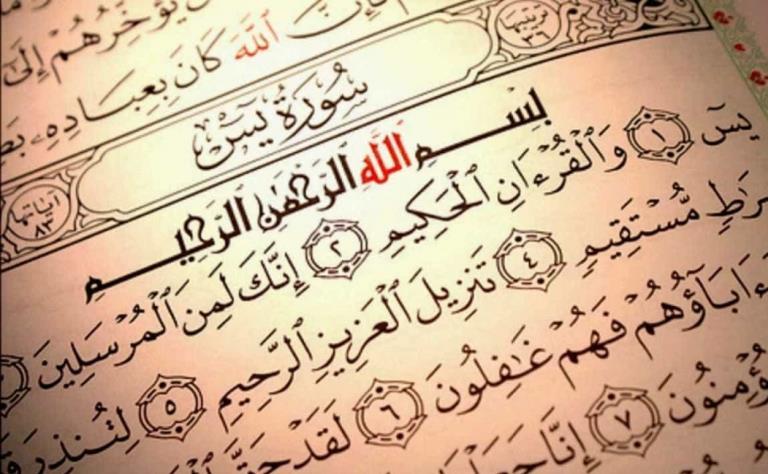 يُؤَخِّرُهُمْ إِلَىٰ
فَإِنَّ ٱللَّهَ كَانَ بِعِبَادِهِۦ
ترتيبها ٣٦
سُورَةُ يسٓ
آياتها ٨٣
بِسْمِ ٱللَّهِ ٱلرَّحْمَٰنِ ٱلرَّحِيمِ
يسٓ ١ وَٱلْقُرْءَانِ ٱلْحَكِيمِ ٢ إِنَّكَ لَمِنَ ٱلْمُرْسَلِينَ
مُّسْتَقِيمٍ ٤ تَنزِيلَ ٱلْعَزِيزِ ٱلرَّحِيمِ ٥ لِتُنذِرَ
ءَابَآؤُهُمْ فَهُمْ غَٰفِلُونَ ٦ لَقَدْ حَقَّ
يُؤْمِنُونَ ٧ إِنَّا جَعَلْنَا